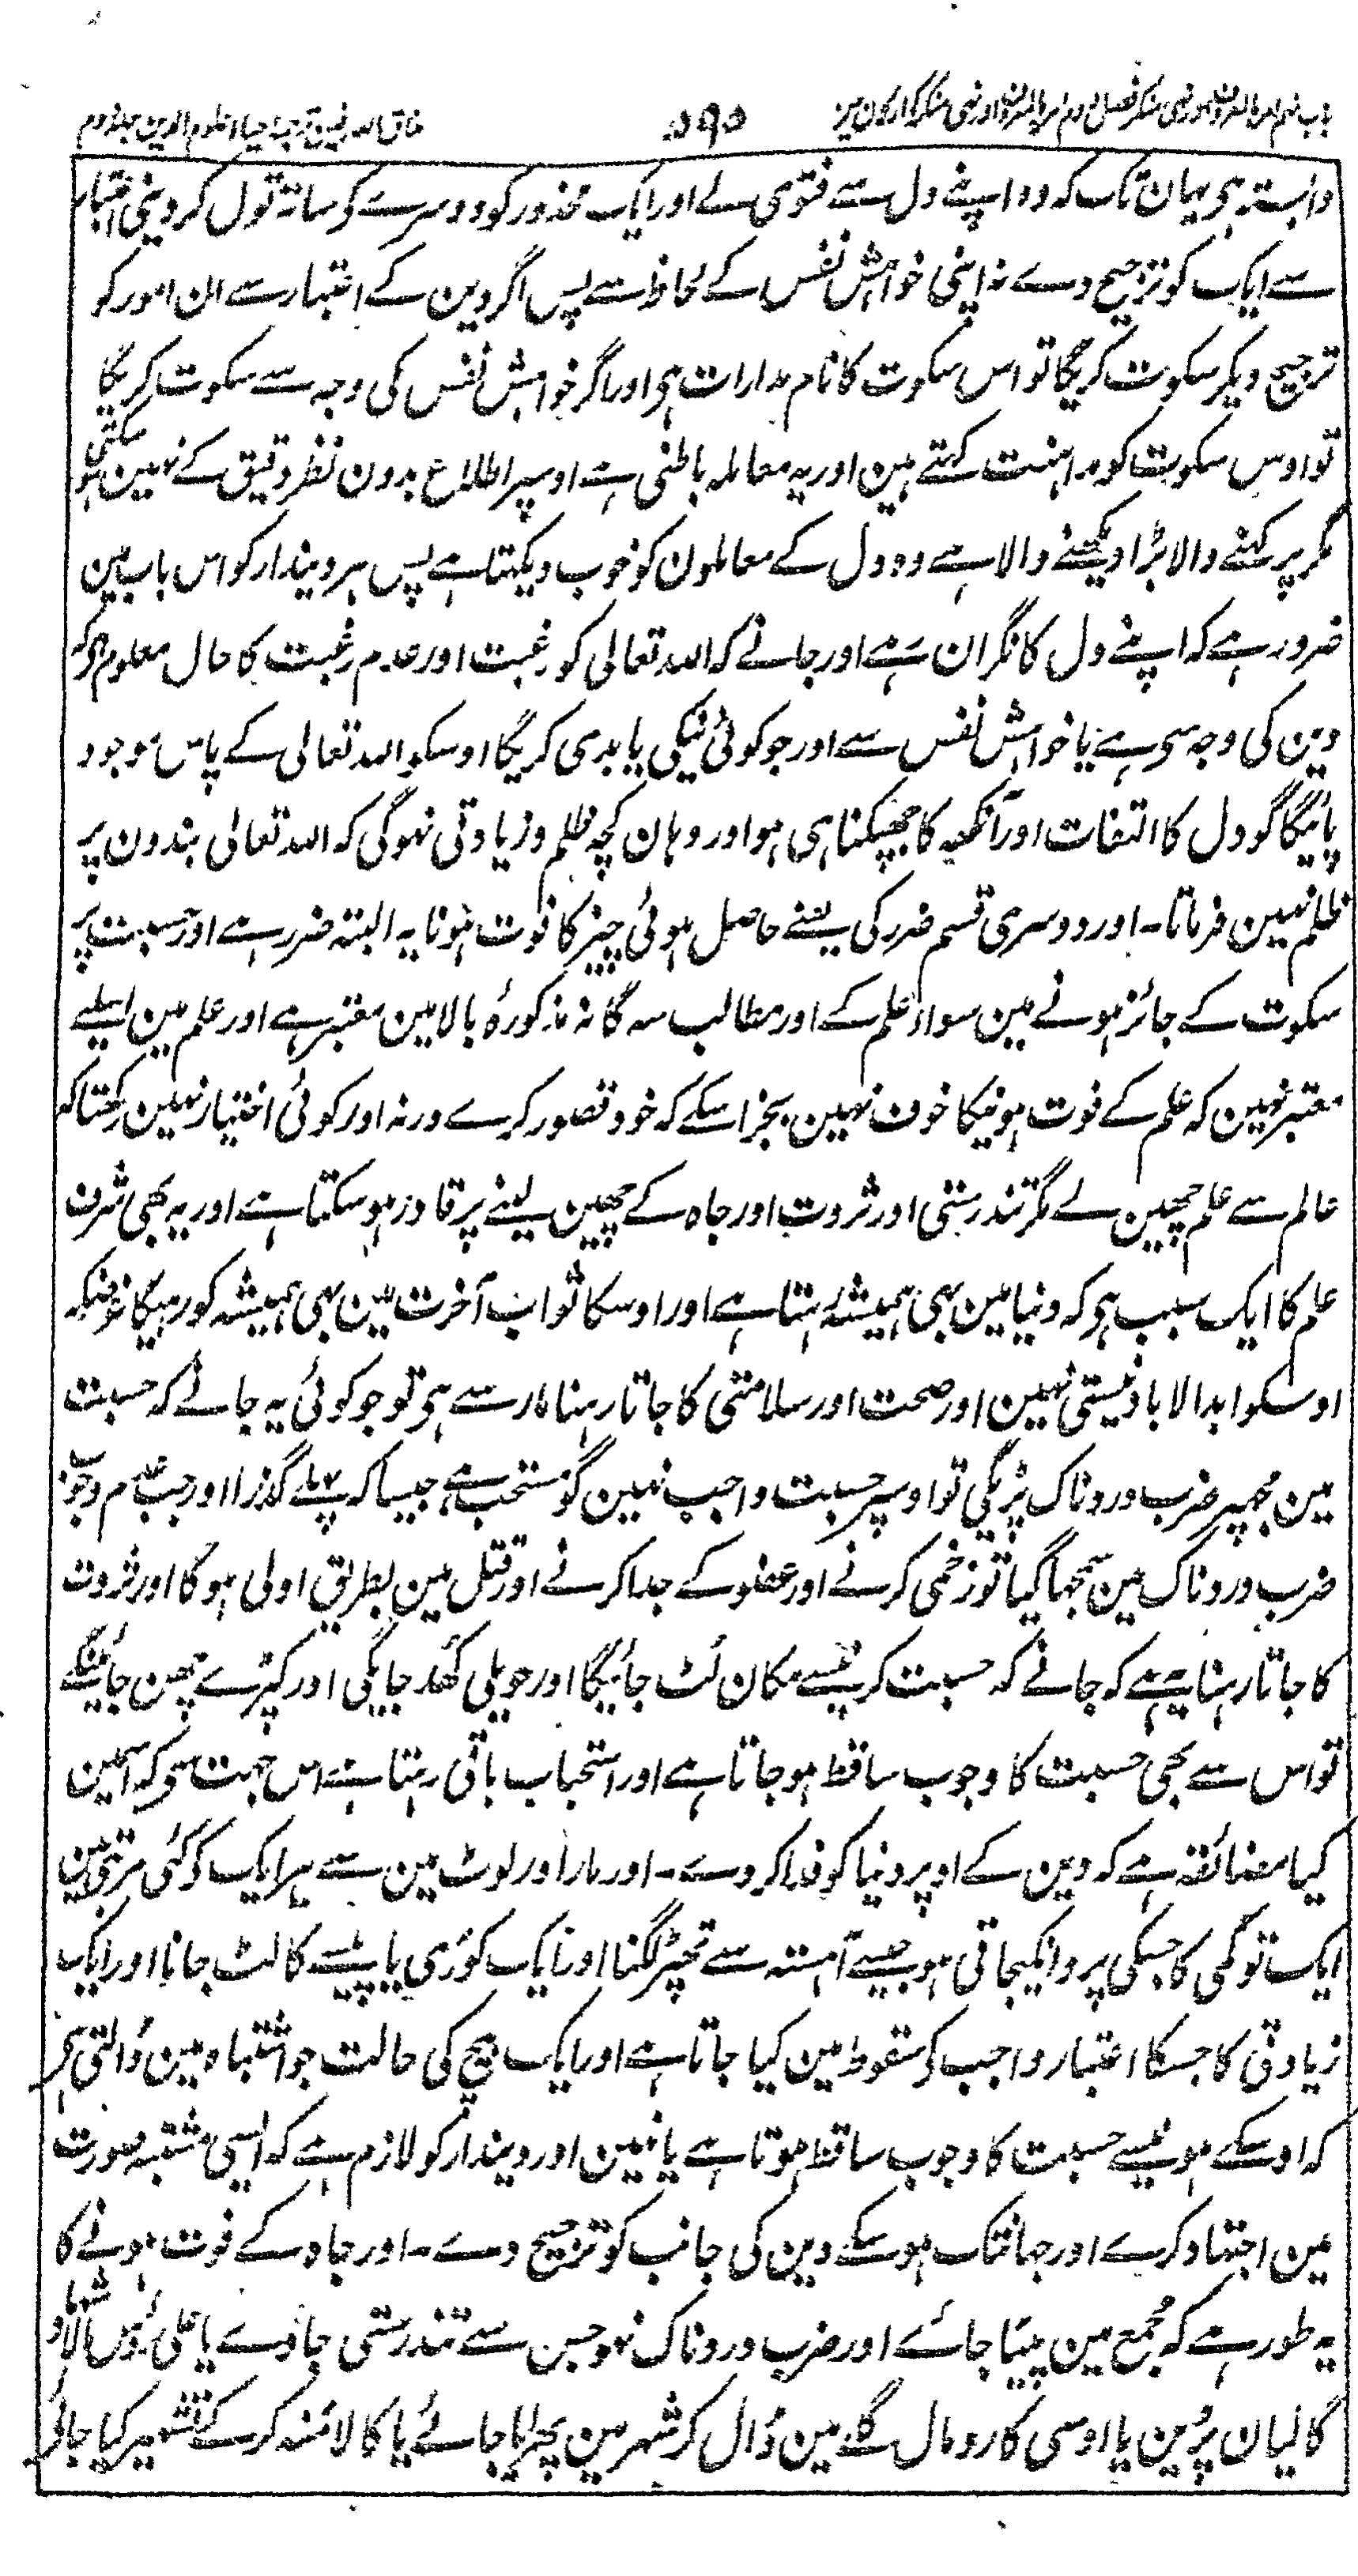 باب نہم امر بالمعروف و نہی منکر فصل دوم امر بالمعروف اور نہی منکر کے ارکان مین
۵۹۵
مذاق العارفین ترجمہ احیاء علوم الدین جلد دوم
وابستہ ہی یہان تک کہ وہ اپنے دل سے فتوی لے اور ایک محذور کو دوسرے کے ساتہ تول کر دینی اعتبار
سے ایک کو ترجیح دے نہ اپنی خواہش نفس کے لحاظ سے پس اگر دین کے اعتبار سے ان امور کو
ترجیح دیکر سکوت کریگا تو اس سکوت کا نام مدارات ہی اور اگر خواہش نفس کی وجہ سے سکوت کریگا
تو اوس سکوت کو مداہنت کہتے ہین اور یہ معاملہ باطنی ہے اوسپر اطلاع بدون نظر دقیق کے نہین ہو سکتی
مگر پرکہنے والا بڑا دیکہنے والا ہے وہ دل کے معاملون کو خوب دیکہتا ہے پس ہر دیندار کو اس باب مین
ضرور ہے کہ اپنے دل کا نگران رہے اور جانے کہ اللہ تعالی کو رغبت اور عدم رغبت کا حال معلوم ہی کہ
دین کی وجہ سی ہے یا خواہش نفس سے اور جو کوئی نیکی یا بدی کریگا اوسکو اللہ تعالی کے پاس موجود
پائیگا گو دل کا التفات اور آنکہہ کا جھپکنا ہی ہو اور وہان کچہ ظلم و زیادتی نہوگی کہ اللہ تعالی بندون پر
ظلم نہین فرماتا۔ اور دوسری قسم ضرر کی یعنے حاصل ہوئی چیز کا فوت ہونا یہ البتہ ضرر ہے اور حسبت پر
سکوت کے جائز ہونے مین سواء علم کے اور مطالب سہ گانہ مذکورۂ بالا مین معتبر ہے اور علم مین اسلیے
معتبر نہین کہ علم کے فوت ہونیکا خوف نہین بجز اسکے کہ خود قصور کرے ورنہ اور کوئی اختیار نہین رکھتا کہ
عالم سے علم چھین لے مگر تندرستی اور ثروت اور جاہ کے چھین لینے پر قادر ہو سکتا ہے اور یہ بھی شرف
علم کا ایک سبب ہی کہ دنیا مین بہی ہمیشہ رہتا ہے اور اوسکا ثواب آخرت مین بہی ہمیشہ کو رہیگا غرضکہ
اوسکو ابدالاباد نیستی نہین اور صحت اور سلامتی کا جاتا رہنا مار سے ہی تو جو کوئی یہ جانے کہ حسبت
مین مجہپر ضرب دردناک پڑیگی تو اوسپر حسبت واجب نہین گو مستحب ہے جیسا کہ پہلے گذرا اور جب عدم وجوب
ضرب دردناک مین سمجہا گیا تو زخمی کرنے اور عضو کے جدا کرنے اور قتل مین بطریق اولی ہوگا اور ثروت
کا جاتا رہنا یہ ہے کہ جانے کہ حسبت کرنیسے مکان لٹ جائیگا اور حویلی کھد جایگی اور کپڑے چھن جائینگے
تو اس سے بھی حسبت کا وجوب ساقط ہو جاتا ہے اور استحباب باقی رہتا ہے اس جہت سی کہ اسمین
کیا مضائقہ ہے کہ دین کے اوپر دنیا کو فدا کردے۔ اور مار اور لوٹ مین سے ہر ایک کے کئی مرتبے ہین
ایک تو کمی کا جسکی پروا نکیجاتی ہو جیسے آہستہ سے تھپڑ لگنا اور ایک کوڑی یا پیسے کا لٹ جانا اور ایک
زیادتی کا جسکا اعتبار واجب کے سقوط مین کیا جاتا ہے اور ایک بیچ کی حالت جو اشتباہ مین ڈالتی ہی
کہ اوسکے ہونیسے حسبت کا وجوب ساقط ہوتا ہے یا نہین اور دیندار کو لازم ہے کہ ایسی مشتبہ صورت
مین اجتہاد کرے اور جہانتک ہو سکے دین کی جانب کو ترجیح دے۔ اور جاہ کے فوت ہونے کا
یہ طور ہے کہ مجمع مین پیٹا جائے اور ضرب دردناک نہو جس سے تندرستی جاوے یا علی رؤس الاشہاد
گالیان پڑین یا اوسی کا رومال گلے مین ڈال کر شہر مین پھرایا جائے یا کالا منہ کرکے تشہیر کیا جائے